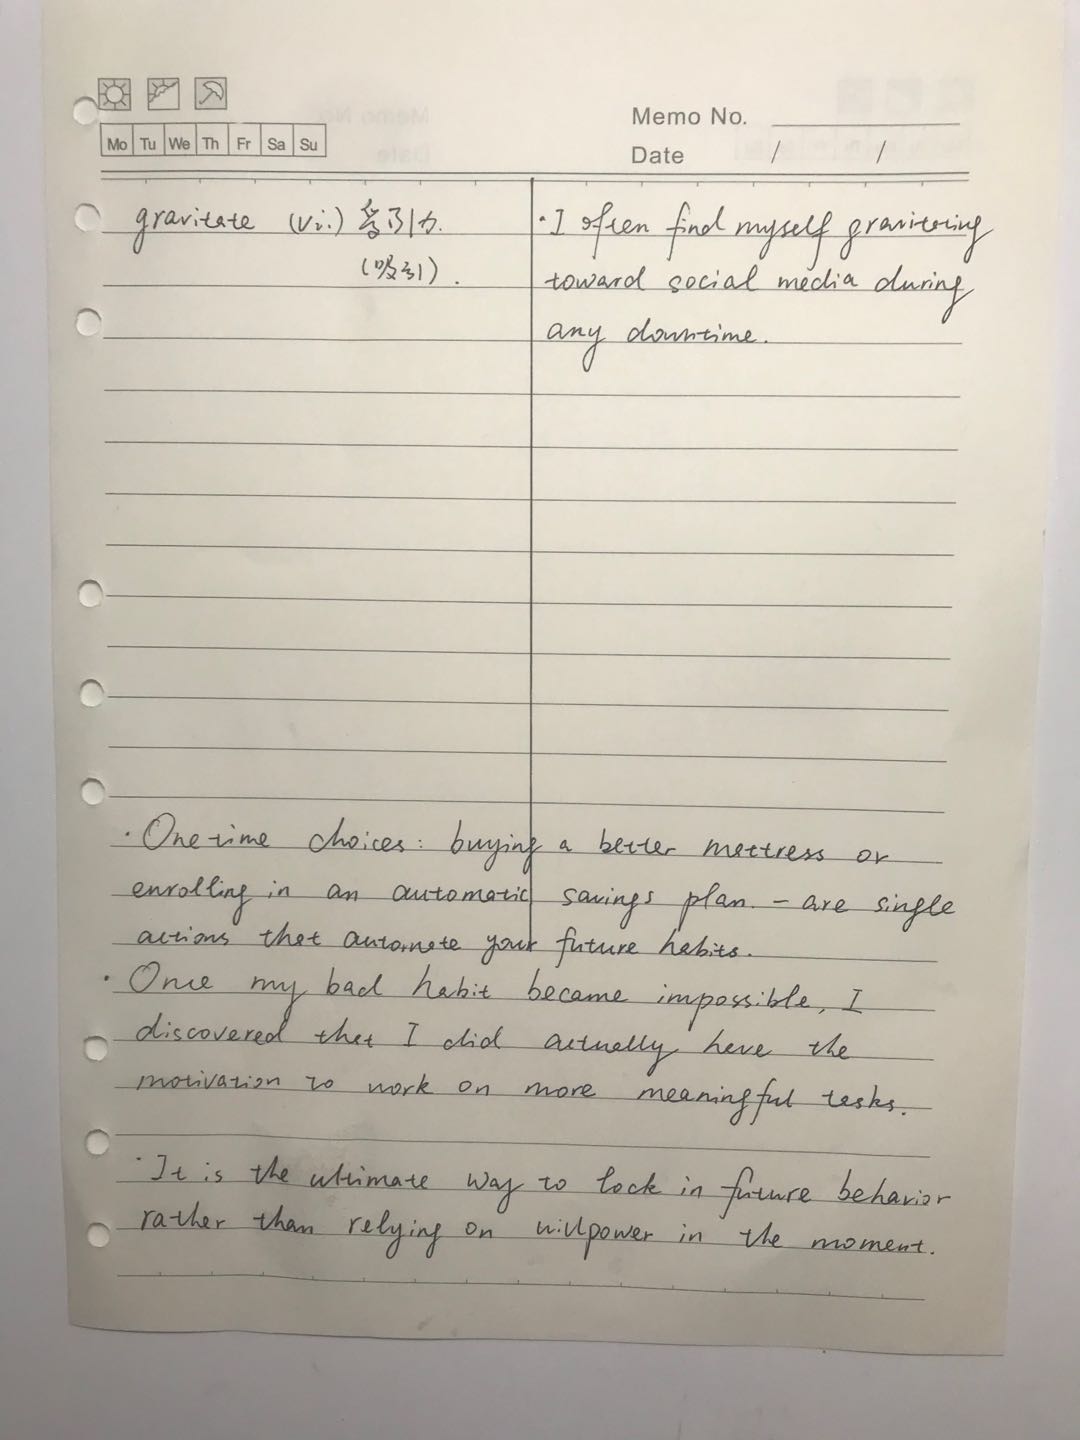 Mo Tu We Th Fr Sa Su
Memo No.
Date / /
gravitate (vi.) 受引力.
(吸引).
· I often find myself gravitating
toward social media during
any downtime.
· One-time choices: buying a better mattress or
enrolling in an automatic savings plan. - are single
actions that automate your future habits.
· Once my bad habit became impossible, I
discovered that I did actually have the
motivation to work on more meaningful tasks.
· It is the ultimate way to lock in future behavior
rather than relying on willpower in the moment.